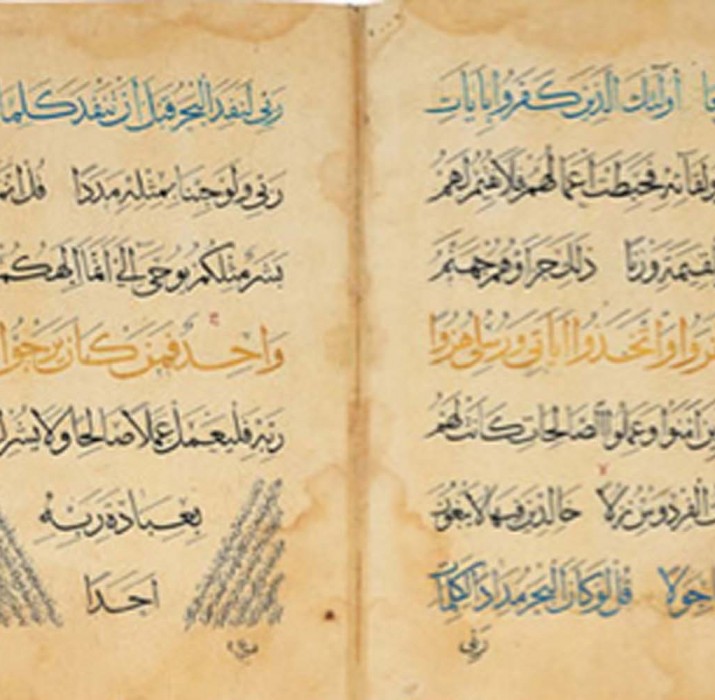 أولئك الذين كفروا بايات
ولقائه فحبطت أعمالهم فلا نقيم لهم
القيمة وزنا ذلك جزاؤهم جهنم
واتخذوا اياتي ورسلي هزوا
آمنوا وعملوا الصالحات كانت لهم
الفردوس نزلا خالدين فيها لا يبغون
حولا قل لو كان البحر مدادا لكلمات
ربي
ربي لنفد البحر قبل أن تنفد كلما
ربي ولو جئنا بمثله مددا قل انما
بشر مثلكم يوحى الي انما الهكم
واحد فمن كان يرجوا
ربه فليعمل عملا صالحا ولا يشر
بعبادة ربه
احدا